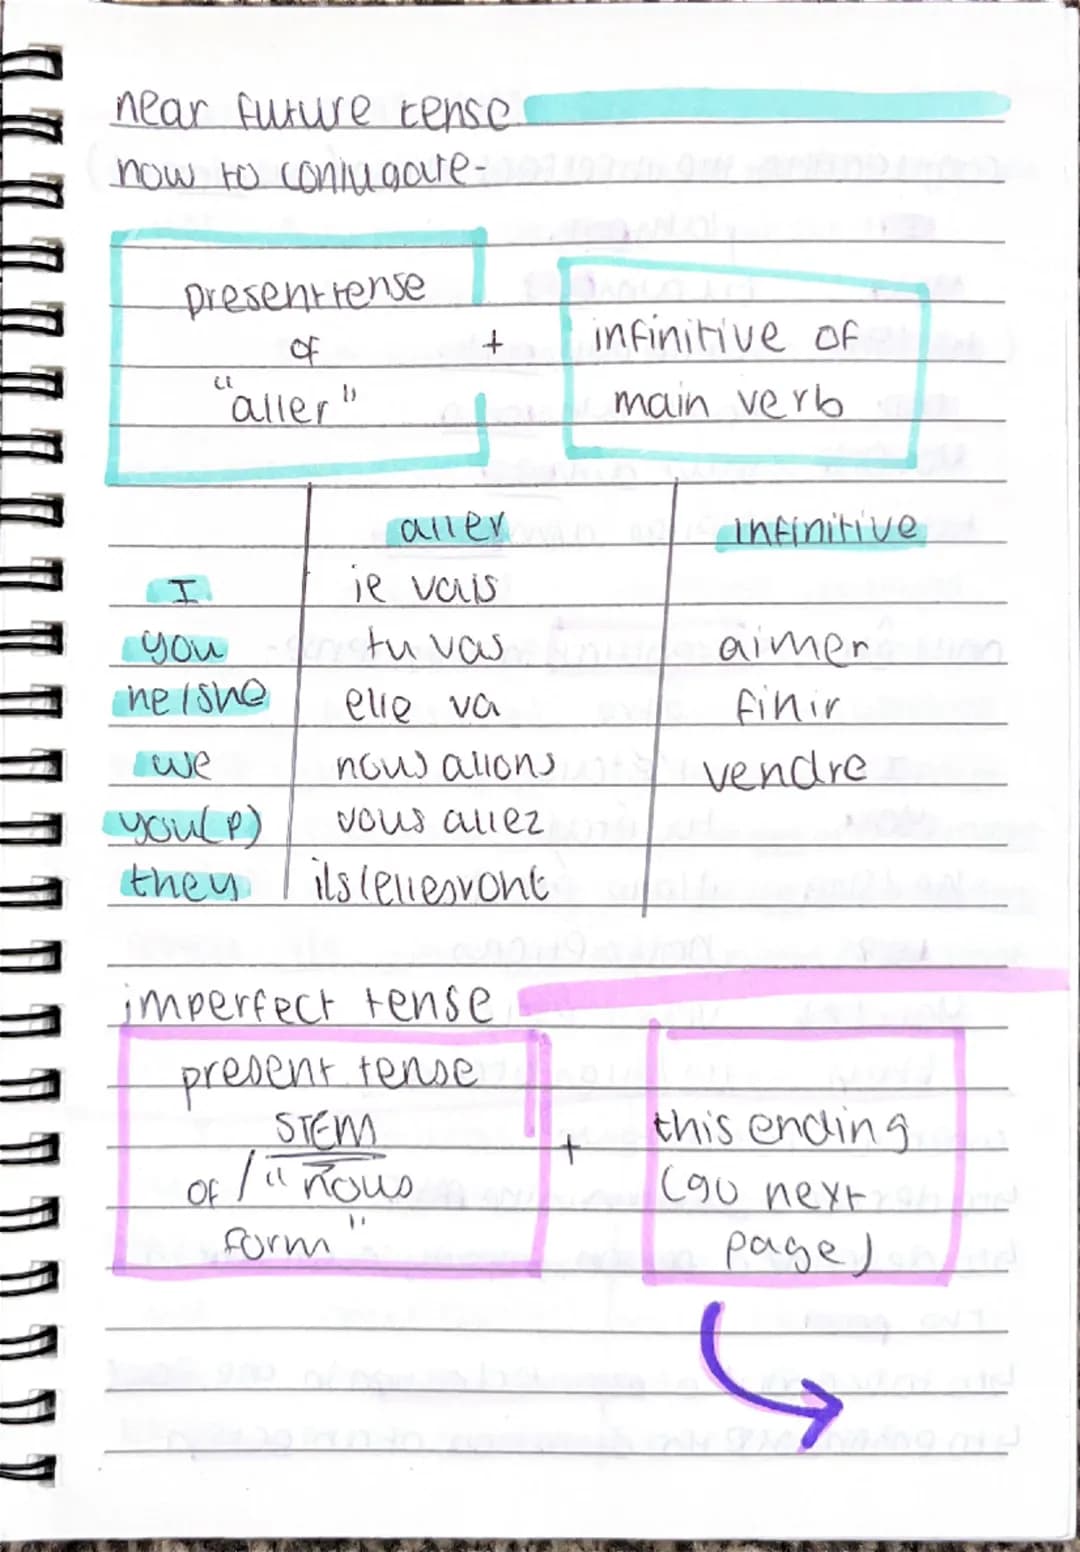 near future tense
how to conjugate-
present tense
of
"aller"
+
infinitive of
main verb
aller infinitive
I je vais
you tu vas aimer
he/she elle va finir
we nous allons vendre
you(p) vous allez
they ils/elles vont
imperfect tense
present tense
STEM
of / "nous
form"
+
this ending
(go next
page)